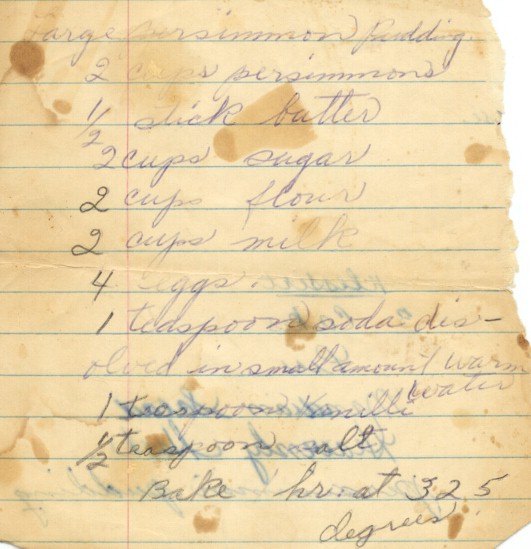 Large persimmon Pudding
2 cups persimmons
1/2 stick butter
2 cups sugar
2 cups flour
2 cups milk
4 eggs.
1 teaspoon soda dis-
olved in small amount warm
water
1 teaspoon vanilli
1/2 teaspoon salt
Bake hr. at 325
degrees.